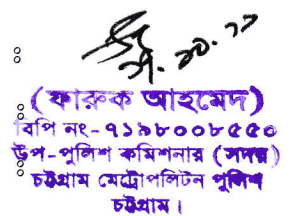 (ফারুক আহমেদ)
বিপি নং-৭১৯৮০০৮৫৫০
উপ-পুলিশ কমিশনার (সদর)
চট্টগ্রাম মেট্রোপলিটন পুলিশ
চট্টগ্রাম।